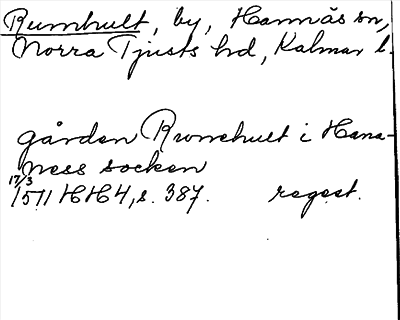 Rumhult, by, Hannäs sn,
Norra Tjusts hd, Kalmar l.
gården Rwmehult i Hana-
ness socken
17/3
1511 HH4, s. 387. regest.